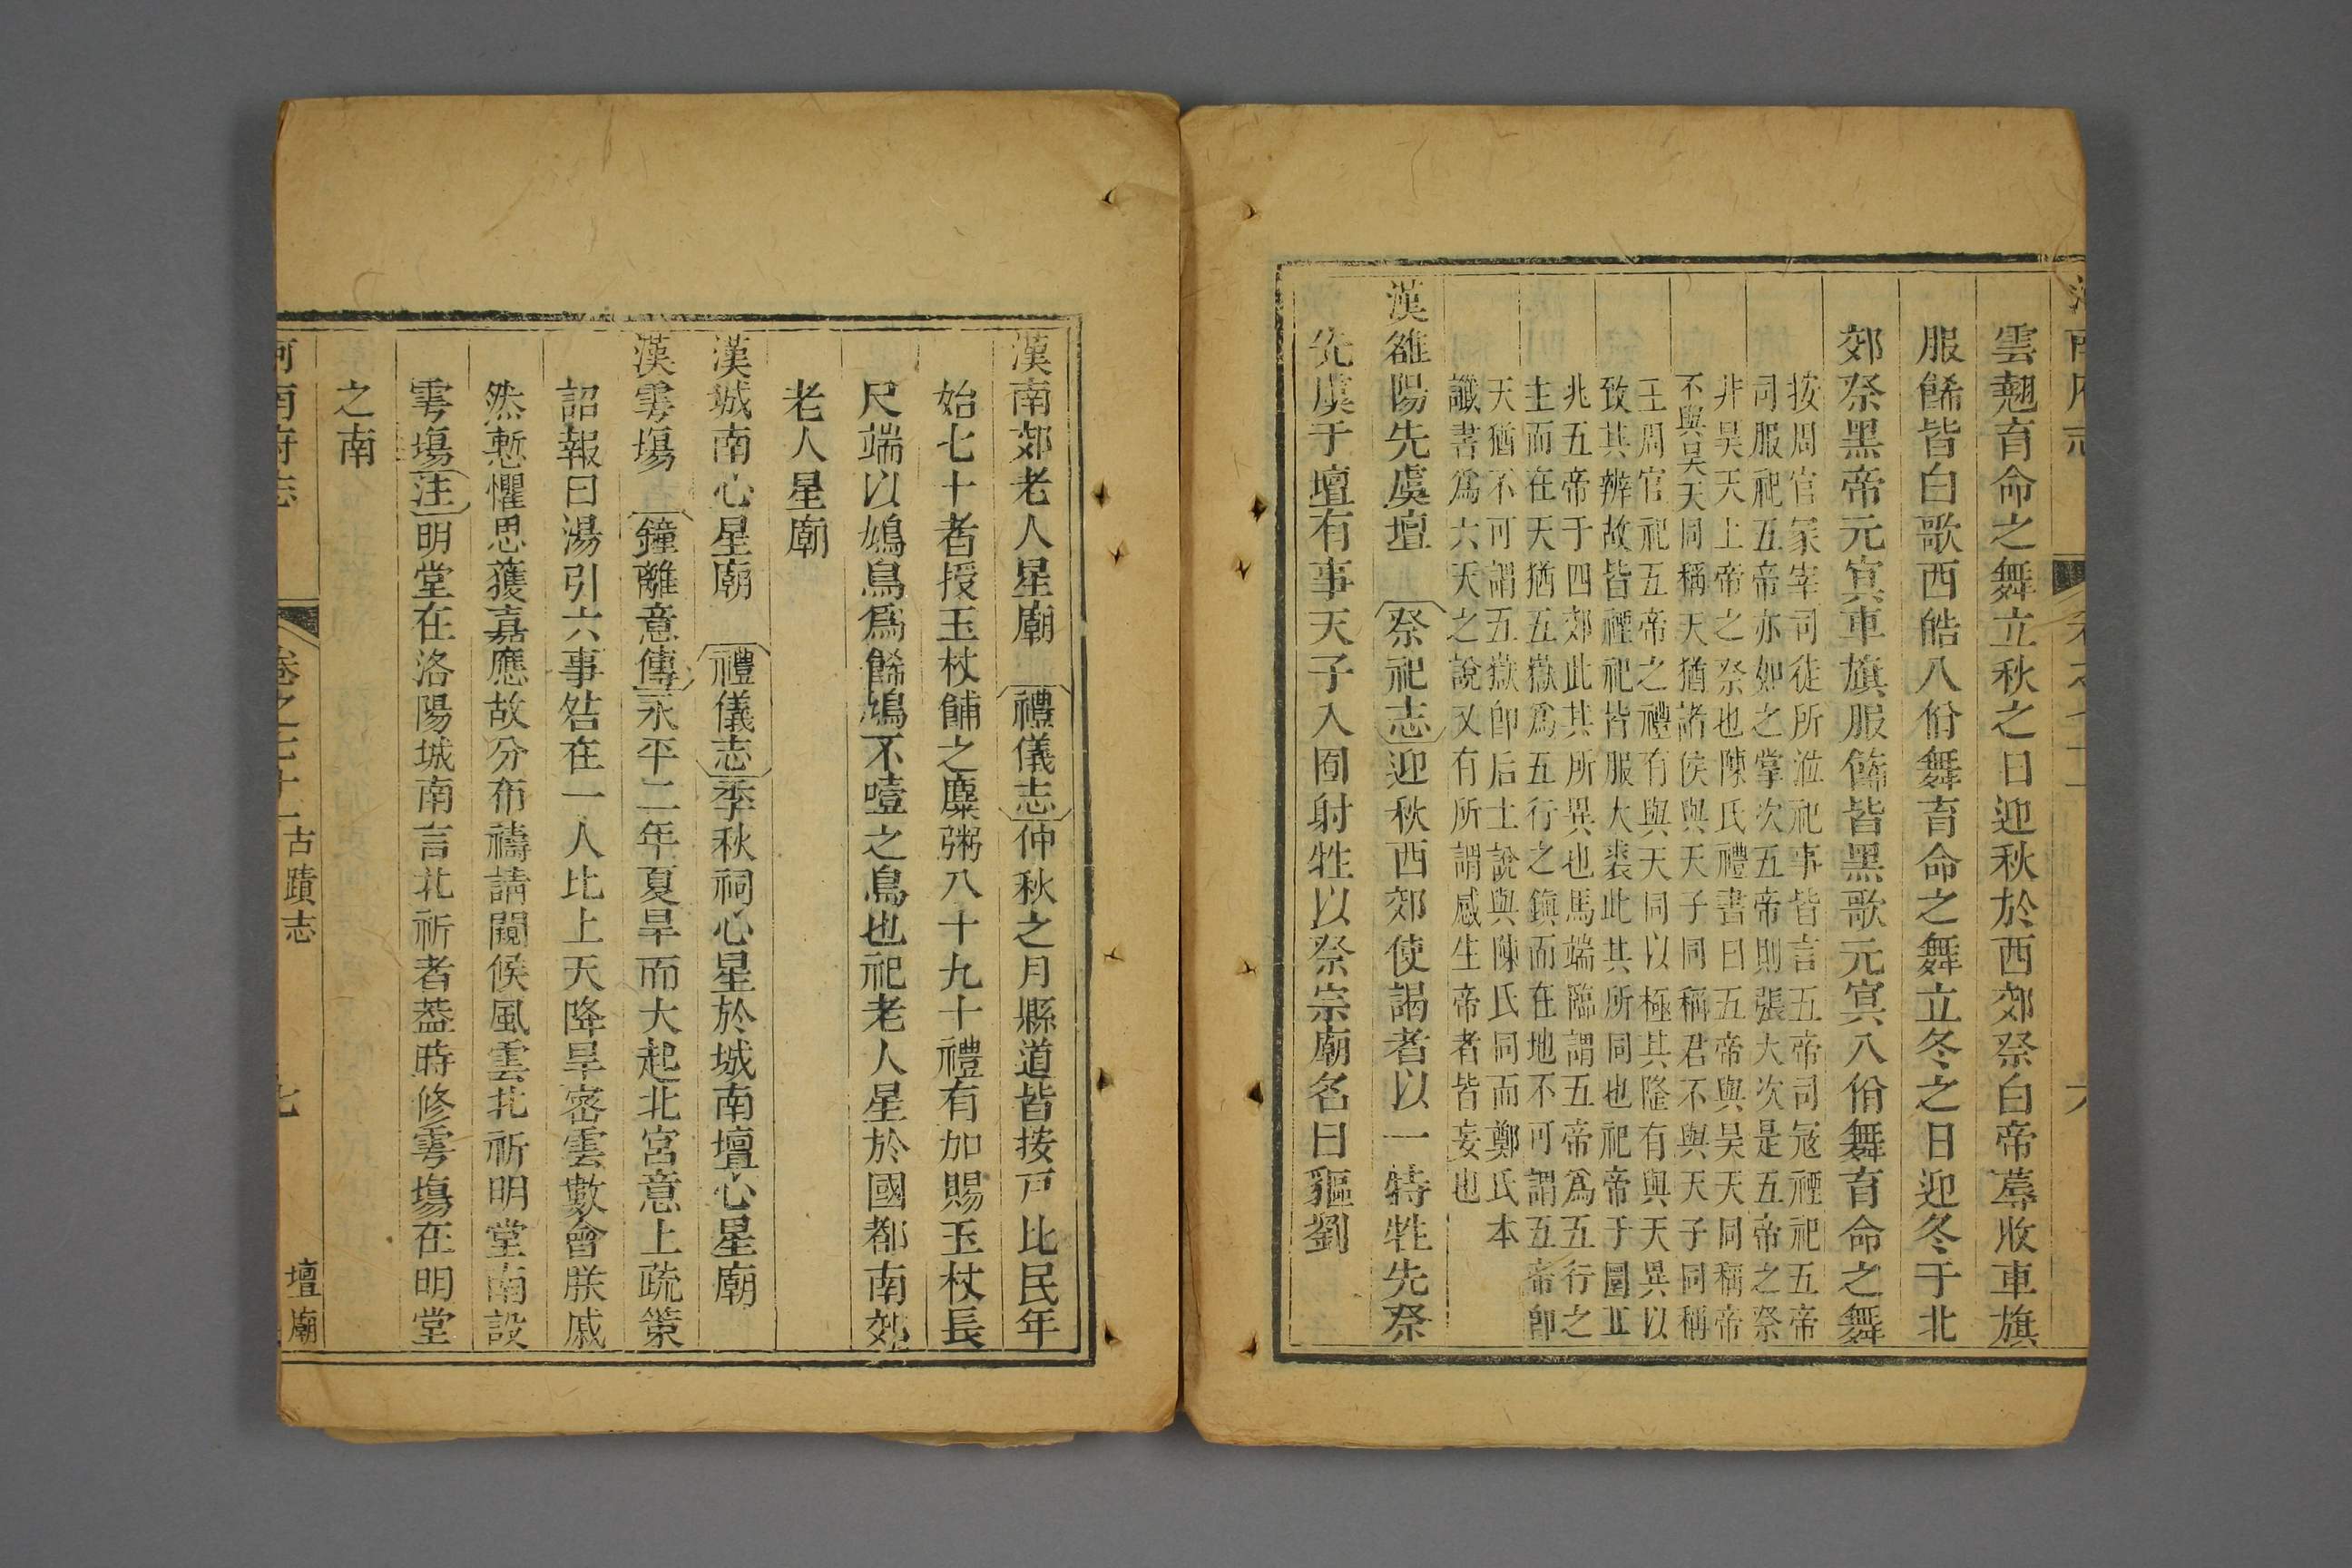 雲翹育命之舞立秋之日迎秋於西郊祭白帝蓐收車旗
服餙皆白歌西皓八佾舞育命之舞立冬之日迎冬于北
郊祭黑帝元冥車旗服餙皆黑歌元冥八佾舞育命之舞
按周官冢宰司徒所涖祀事皆言五帝司冦禋祀五帝
司服祀五帝亦如之掌次五帝則張大次是五帝之祭
非昊天上帝之祭也陳氏禮書曰五帝與昊天同稱帝
不與昊天同稱天猶諸侯與天子同稱君不與天子同稱
王周官祀五帝之禮有與天同以極其隆有與天異以
致其辨故皆禋祀皆服大裘此其所同也祀帝于圜丘
兆五帝于四郊此其所異也馬端臨謂五帝爲五行之
主而在天猶五嶽爲五行之鎮而在地不可謂五帝卽
天猶不可謂五嶽卽后土說與陳氏同而鄭氏本
讖書爲六天之說又有所謂感生帝者皆妄也
漢雒陽先虞壇 祭祀志迎秋西郊使謁者以一特牲先祭
先虞于壇有事天子入囿射牲以祭宗廟名曰貙劉
漢南郊老人星廟 禮儀志仲秋之月縣道皆按戸比民年
始七十者授玉杖餔之麋粥八十九十禮有加賜玉杖長
尺端以鳩鳥爲餙鳩不噎之鳥也祀老人星於國都南郊
老人星廟
漢城南心星廟 禮儀志季秋祠心星於城南壇心星廟
漢雩場 鐘離意傳永平二年夏旱而大起北宮意上疏策
詔報曰湯引六事咎在一人比上天降旱宻雲數會朕戚
然慙懼思獲嘉應故分布禱請闚候風雲北祈明堂南設
雩塲注明堂在洛陽城南言北祈者葢時修雩塲在明堂
之南
河南府志
卷之
古蹟志
七
壇廟